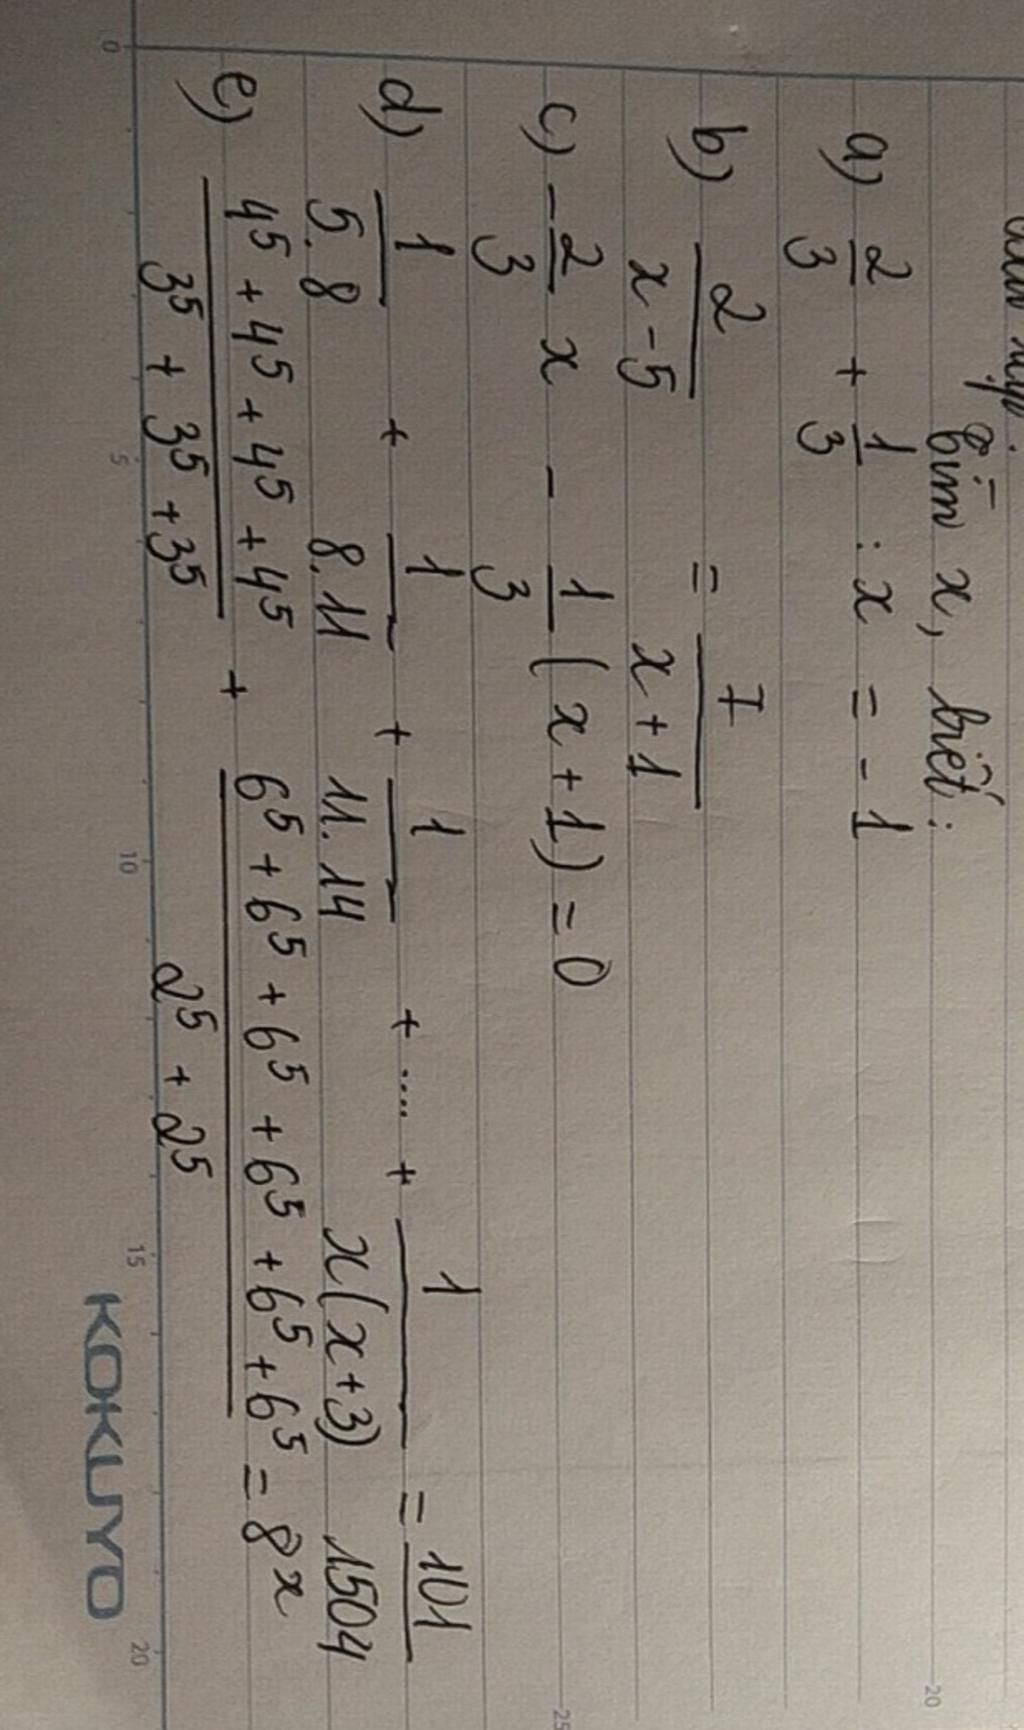 Tìm x, biết:
a) 2/3 + 1/3 : x = -1
b) 2/(x-5) = 7/(x+1)
c) -2/3 x - 1/3 (x+1) = 0
d) 1/5.8 + 1/8.11 + 1/11.14 + .... + 1/x(x+3) = 101/1504
e) (4⁵ + 4⁵ + 4⁵ + 4⁵)/(3⁵ + 3⁵ + 3⁵) + (6⁵ + 6⁵ + 6⁵ + 6⁵ + 6⁵ + 6⁵)/(2⁵ + 2⁵) = 8ˣ
0 5 10 15 20
KOKUYO
20
25